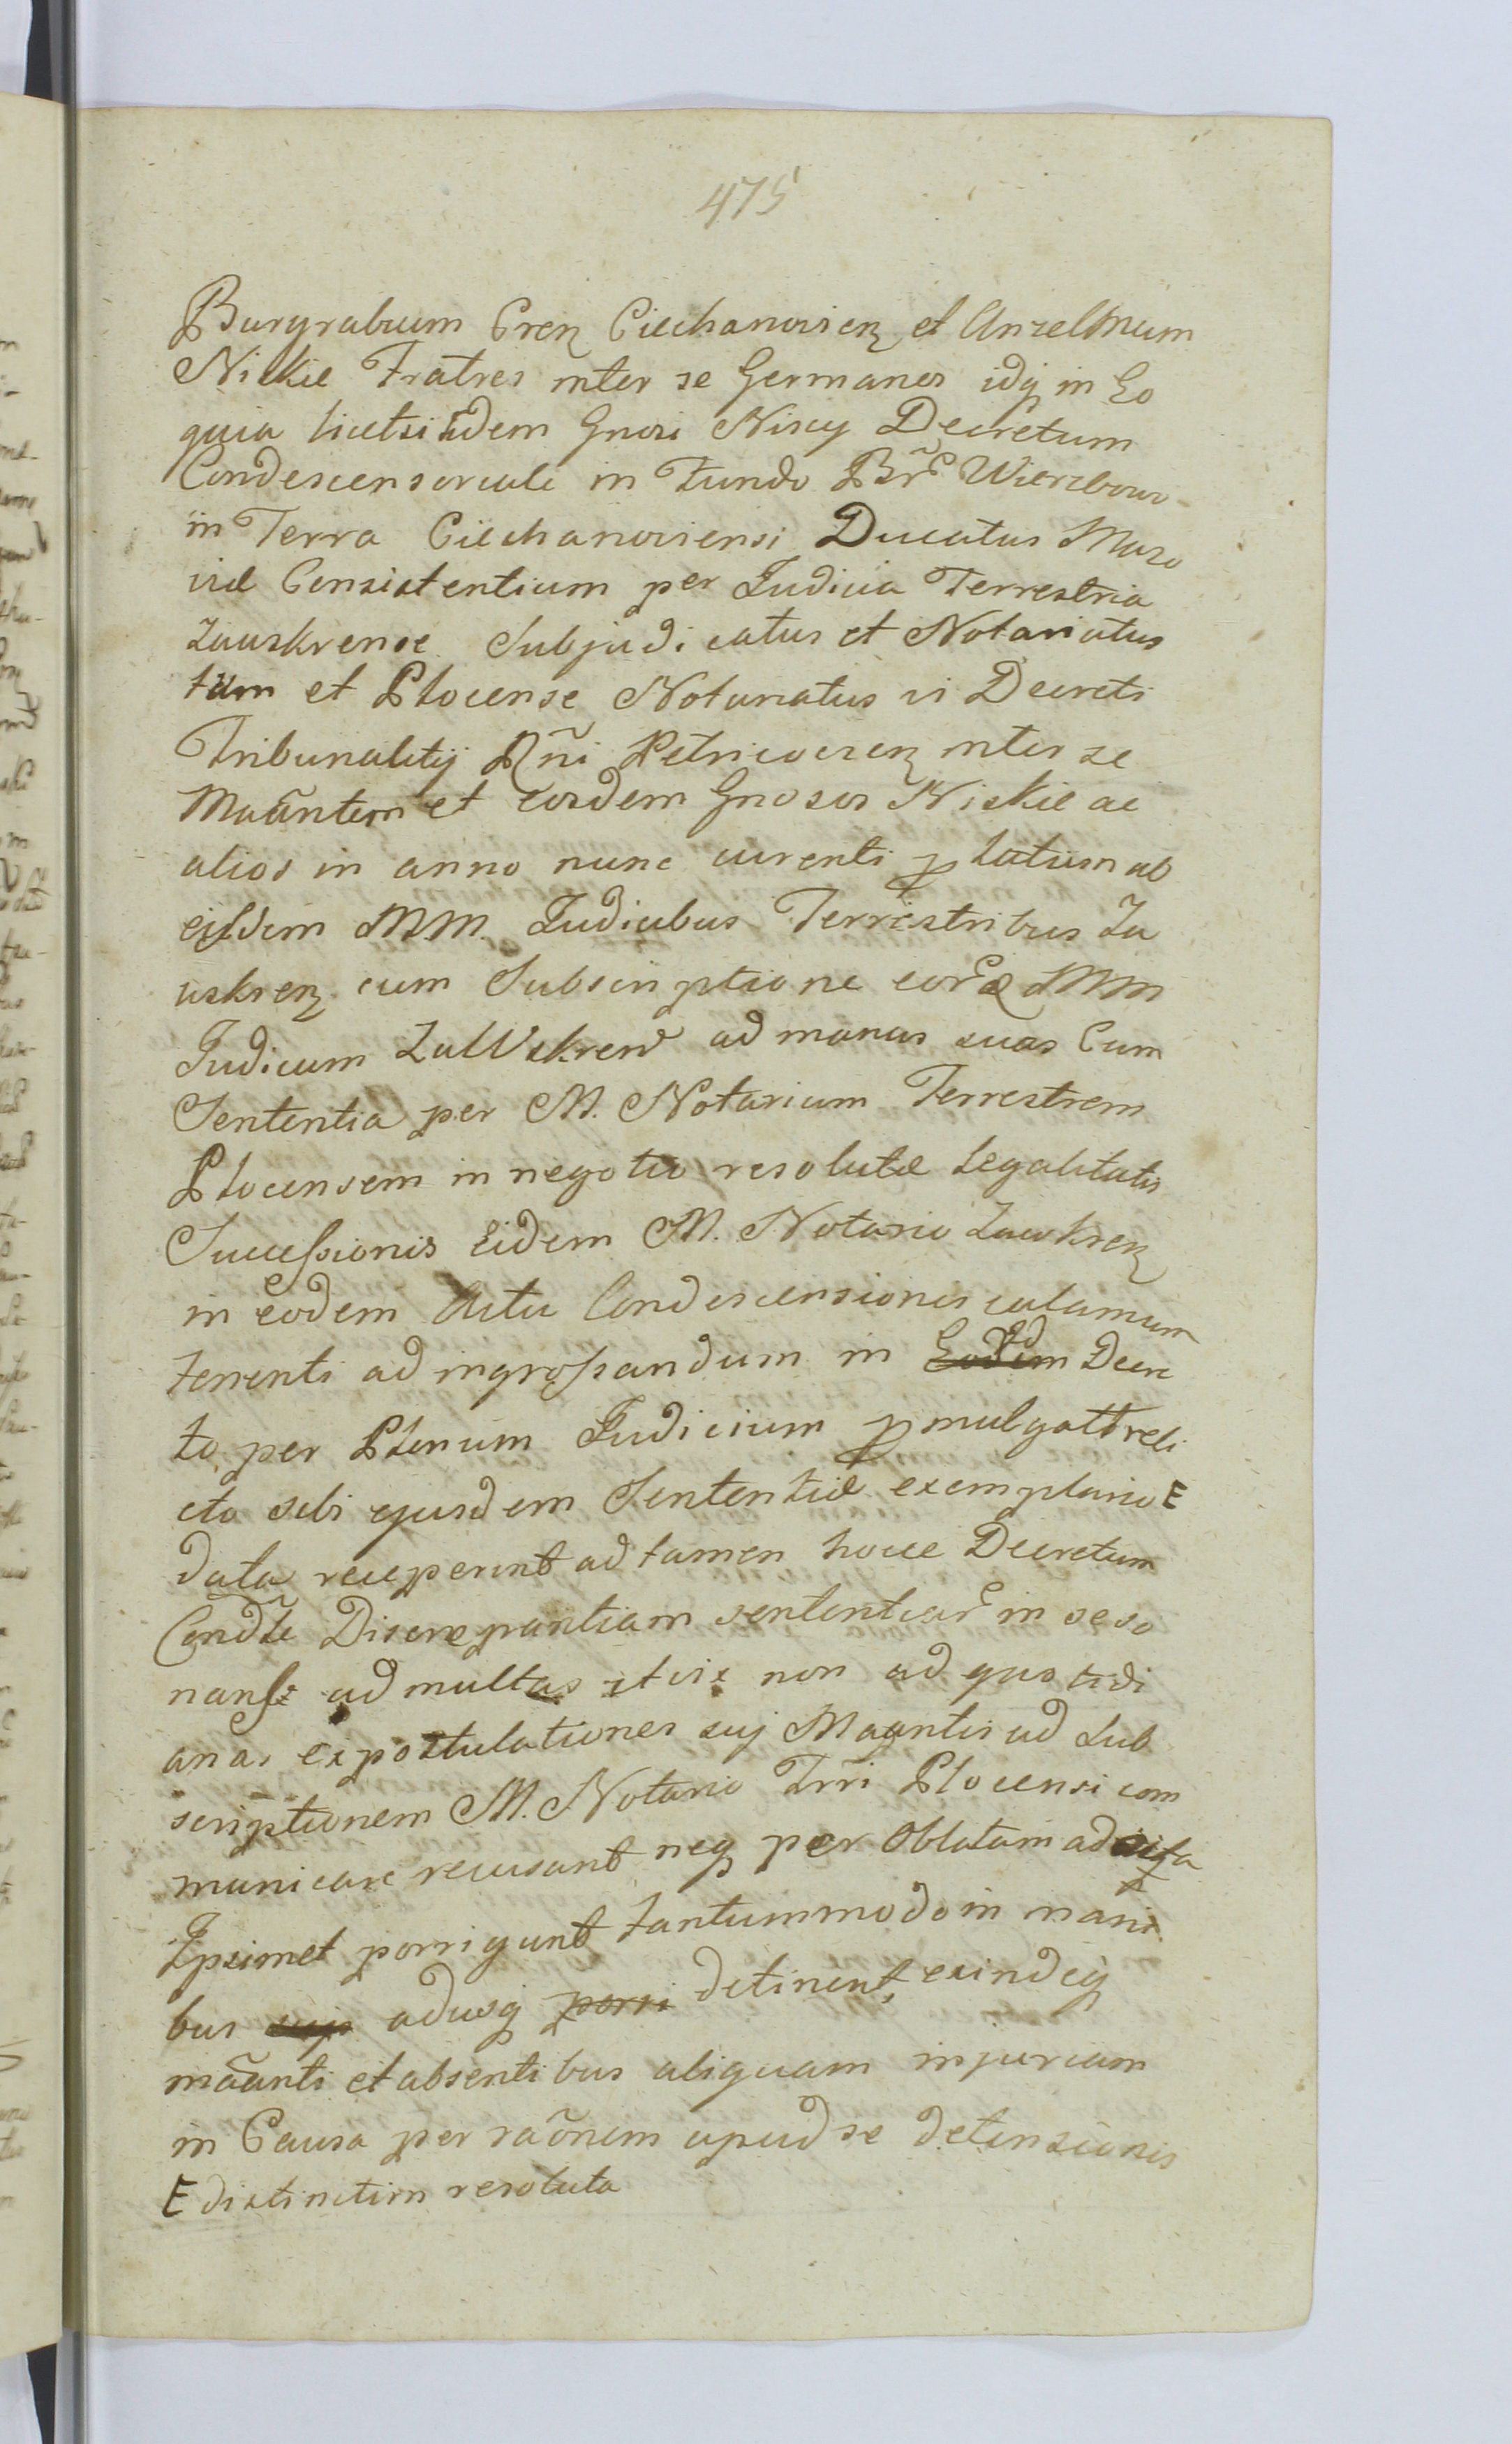 475
Burgrabium Cren Ciechanovien et Anzelmum
Niskie Fratres inter se Germanos idq in Eo
quia licet iidem Gnosi Niscy Decretum
Condescensoriale in Fundo Bro Wierzbowo
in Terra Ciechanoviensi Ducatus Mazo
viæ Consistentium per Judicia Terrestria
Zauskrense Subjudicatus et Notariatus
tum et Plocense Notariatus vi Decreti
Tribunalitij Rñi Petricovien inter se
Maãntem et eosdem Gnosos Niskie ac
alios in anno nunc currenti platum ab
eisdem MM. Judicibus Terrestribus Za
uskren. cum Subscriptione eor MM
Judicum ZaWskren ad manus suas Cum
Sententia per M. Notarium Terrestrem
Plocensem in negotio resolutæ Legalitatis
Successionis Eidem M. Notario Zawkren
in eodem Actu Condescensionis calamum
tenenti ad ingrossandum in Eodem Decre
to per Plenum Judicium pmulgatt reli
cto sibi ejusdem Sententiæ exemplario E
data receperint ad tamen hocce Decretum
Condle Discrepantiam sententiar in se so
nans ad multas et vix non ad quotidi
anas expostulationes suj Maantis ad Sub
scriptionem M. Notario Trri Plocensi com
municare recusant neq per Oblatam ad acta
Ipsimet porrigunt tantummodo in mani
bus suis adusq porri detinent, exindeq
maãnti et absentibus aliquam injuriam
in Causa per raõnem apud se detensionis
E distinctim resoluta